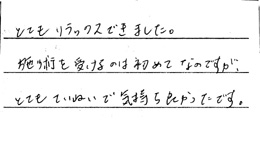 とてもリラックスできました。
施術を受けるのは初めてなのですが、
とてもていねいで気持ち良かったです。